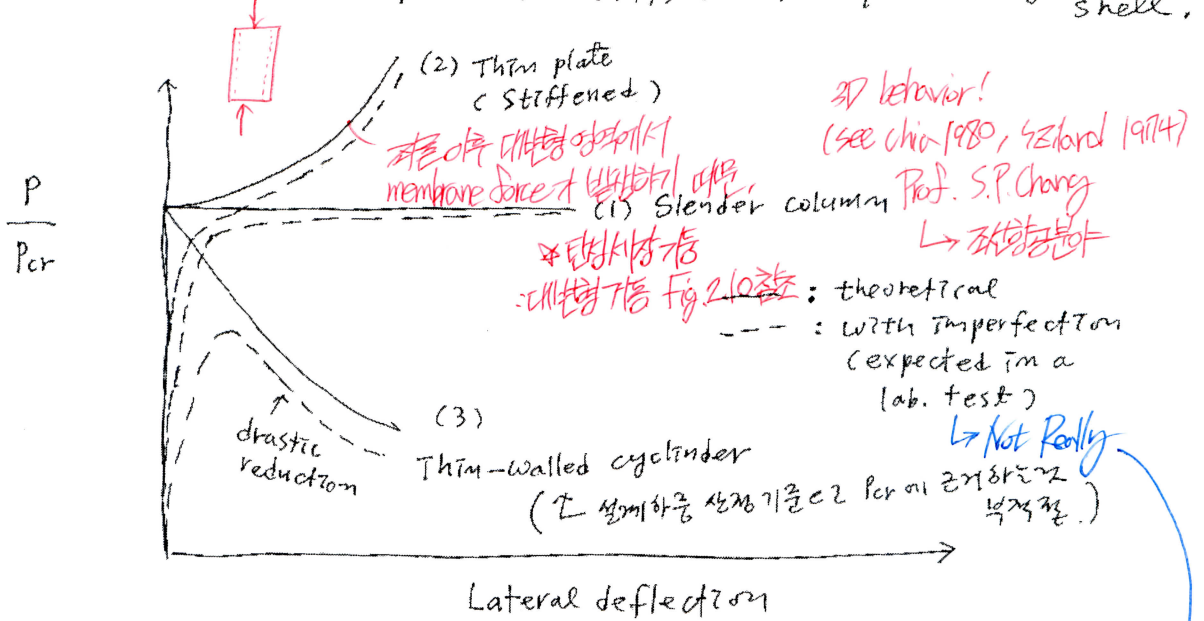 shell.
(2) Thin plate
(Stiffened)
3D behavior!
(see chia 1980, Szilard 1974)
Prof. S.P. Chang
↳ 조선항공분야
좌굴 이후 대변형 영역에서
membrane force가 발생하기 때문.
P
Pcr
(1) Slender column
* 탄성세장기둥
: 대변형거동 Fig. 2.10 참조
: theoretical
--- : with imperfection
(expected in a
lab. test)
↳ Not Really
(3)
drastic
reduction
Thin-walled cyclinder
(↑ 설계하중 산정기준으로 Pcr에 근거하는것
부적절.)
Lateral deflection